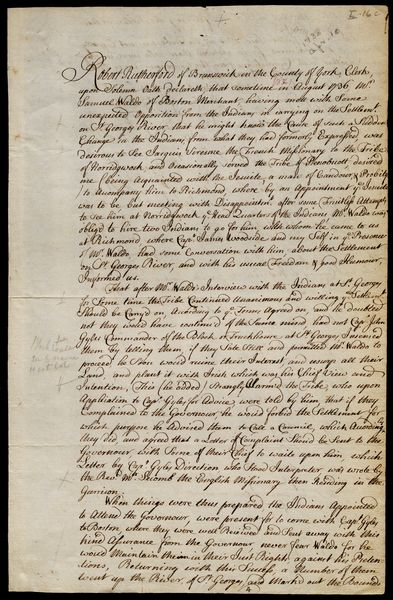 I-16-
1738
Apr. 18
Robert Rutherford of Brunswick in the County of York, Clerk
upon Solemn Oath declareth, that sometime in August 1736 Mr.
Samuel Waldo of Boston Merchant, having mett with Some
unexpected Opposition from the Indians, in carrying on the Settlemt.
on St. Georges River, that he might know the Cause of such a Sudden
Change in the Indians, from what they had formerly Expressed was
desirous to See the French Missionary to the Tribe
of Norridgwock, and Occasionally served the Tribe of Penobscott desired
me (being Acquainted with the Jesuite, a man of Candour & Probity)
to accompany him to Richmond, where by an Appointment ye. Jesuite
was to be, but meeting with Disappointmt. after some Fruitless Attempts
to See him at Norridgewock ye. Head Quarters of the Indians Mr. Waldo was
obliged to hire two Indians to go for him, with whom he came to us
at Richmond, where Capt. James Woodside and my Self in ye. Presence
of Mr. Waldo, had some Conversation with him about the Settlement
on St. Georges River, and with his usual Freedom & good Humour,
Informed us.
That after Mr. Waldo's Interview with the Indians at St. Georges
for Some time the Tribe Continued Unanimous and willing ye. Settlemt.
Should be Carry'd on, According to ye. Terms Agreed on, and he doubted
not they would have continu'd of the Same mind had not Capt. John
Gyles Commander of the Block or Truckhouse at St. Georges
them by telling them, if they Sate Still and permitted Mr. Waldo to
proceed he Soon would ruine their Interest and usurp all their
Land, and plant it with Irish which was his Chief View and
Intention, (This (he added) Strangly Alarm'd the Tribe, who upon
Application to Capt. Gyles for Advice, were told by him that if they
Complained to the Governour he would forbid the Settlement, for
which purpose he Advised them to Call a Council, which Accordingly
they did and agreed that a Letter of Complaint Should be Sent to the
Governour with Some of their Chiefs to wait upon him, which
Letter by Capt. Gyles Direction who Stood Interpreter was wrote by
the Revd. Mr. the English Missionary then Residing in the
Garrison.
When things were thus prepared the Indians Appointed
to Attend the Governour, were present for to come with Capt. Gyles
to Boston, where they were well Received and Sent away with this
kind Assurance from the Governour never fear Waldo for he
would Maintain them in their Just Rights against his Preten-
tions, Returning with this Success, a Number of them
went up the River of St. Georges, and Marked out the Bounds